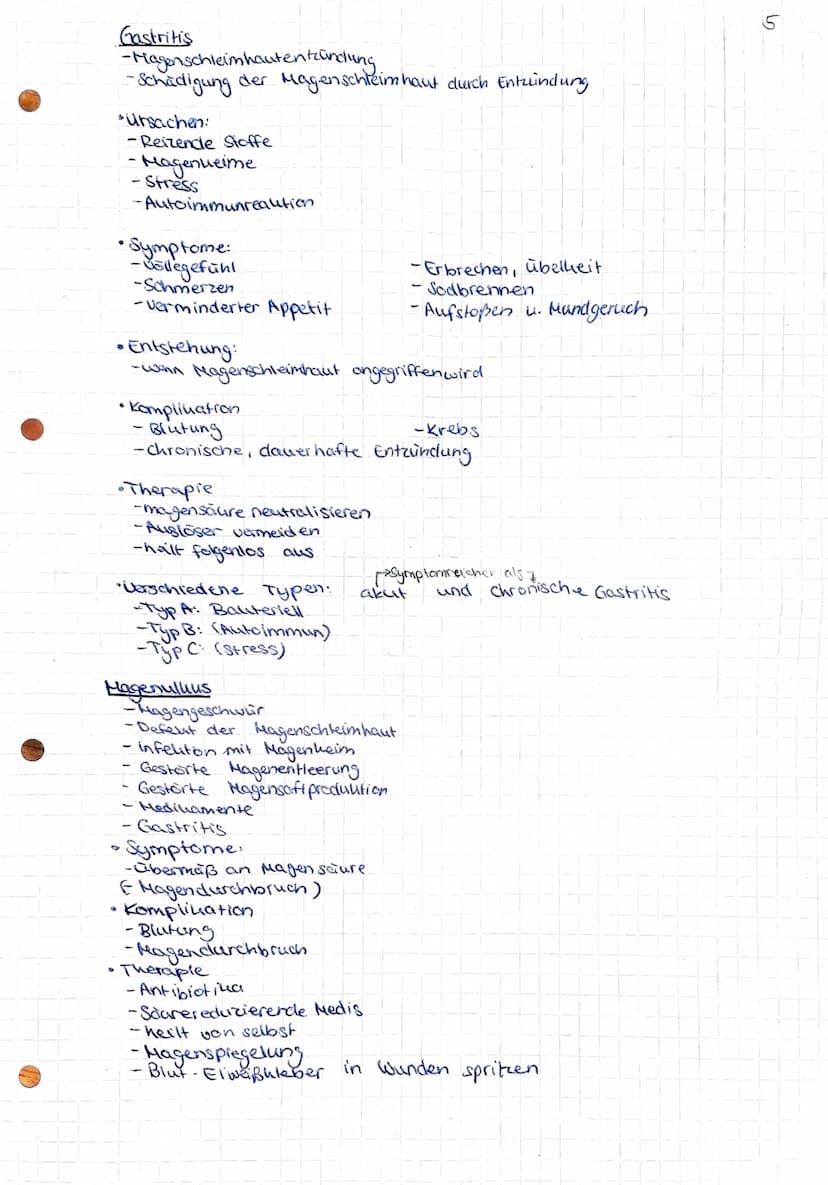 5
Gastritis
- Magenschleimhautentzündung
- Schädigung der Magenschleimhaut durch Entzündung
• Ursachen:
- Reizende Stoffe
- Magenkeime
- Stress
- Autoimmunreaktion
• Symptome:
- Völlegefühl - Erbrechen, Übelkeit
- Schmerzen - Sodbrennen
- verminderter Appetit - Aufstoßen u. Mundgeruch
• Entstehung:
- wenn Magenschleimhaut angegriffen wird
• Komplikation
- Blutung - Krebs
- chronische, dauerhafte Entzündung
• Therapie
- magensäure neutralisieren
- Auslöser vermeiden
- heilt folgenlos aus
symptomreicher als
• Verschiedene Typen: akut und chronische Gastritis
- Typ A: Bakteriell
- Typ B: (Autoimmun)
- Typ C: (Stress)
Magenulkus
- Magengeschwür
- Defekt der Magenschleimhaut
- infektion mit Magenkeim
- Gestörte Magenentleerung
- Gestörte Magensaftproduktion
- Medikamente
- Gastritis
• Symptome:
- Übermaß an Magensäure
(- Magendurchbruch)
• Komplikation
- Blutung
- Magendurchbruch
• Therapie
- Antibiotika
- Säurereduzierende Medis
- heilt von selbst
- Magenspiegelung
- Blut - Eiweißkleber in Wunden spritzen